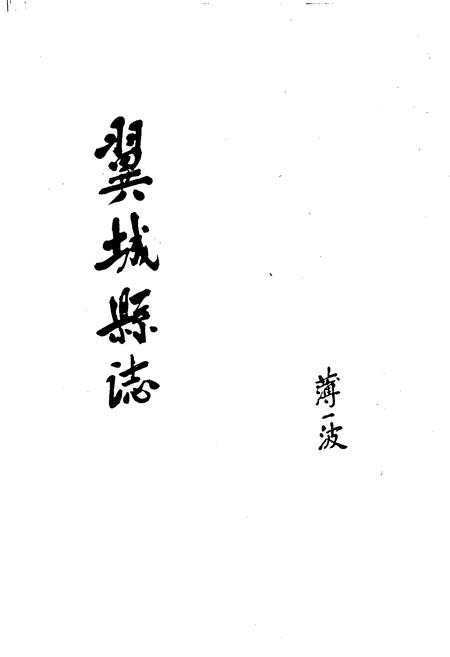 翼城縣誌
薄一波